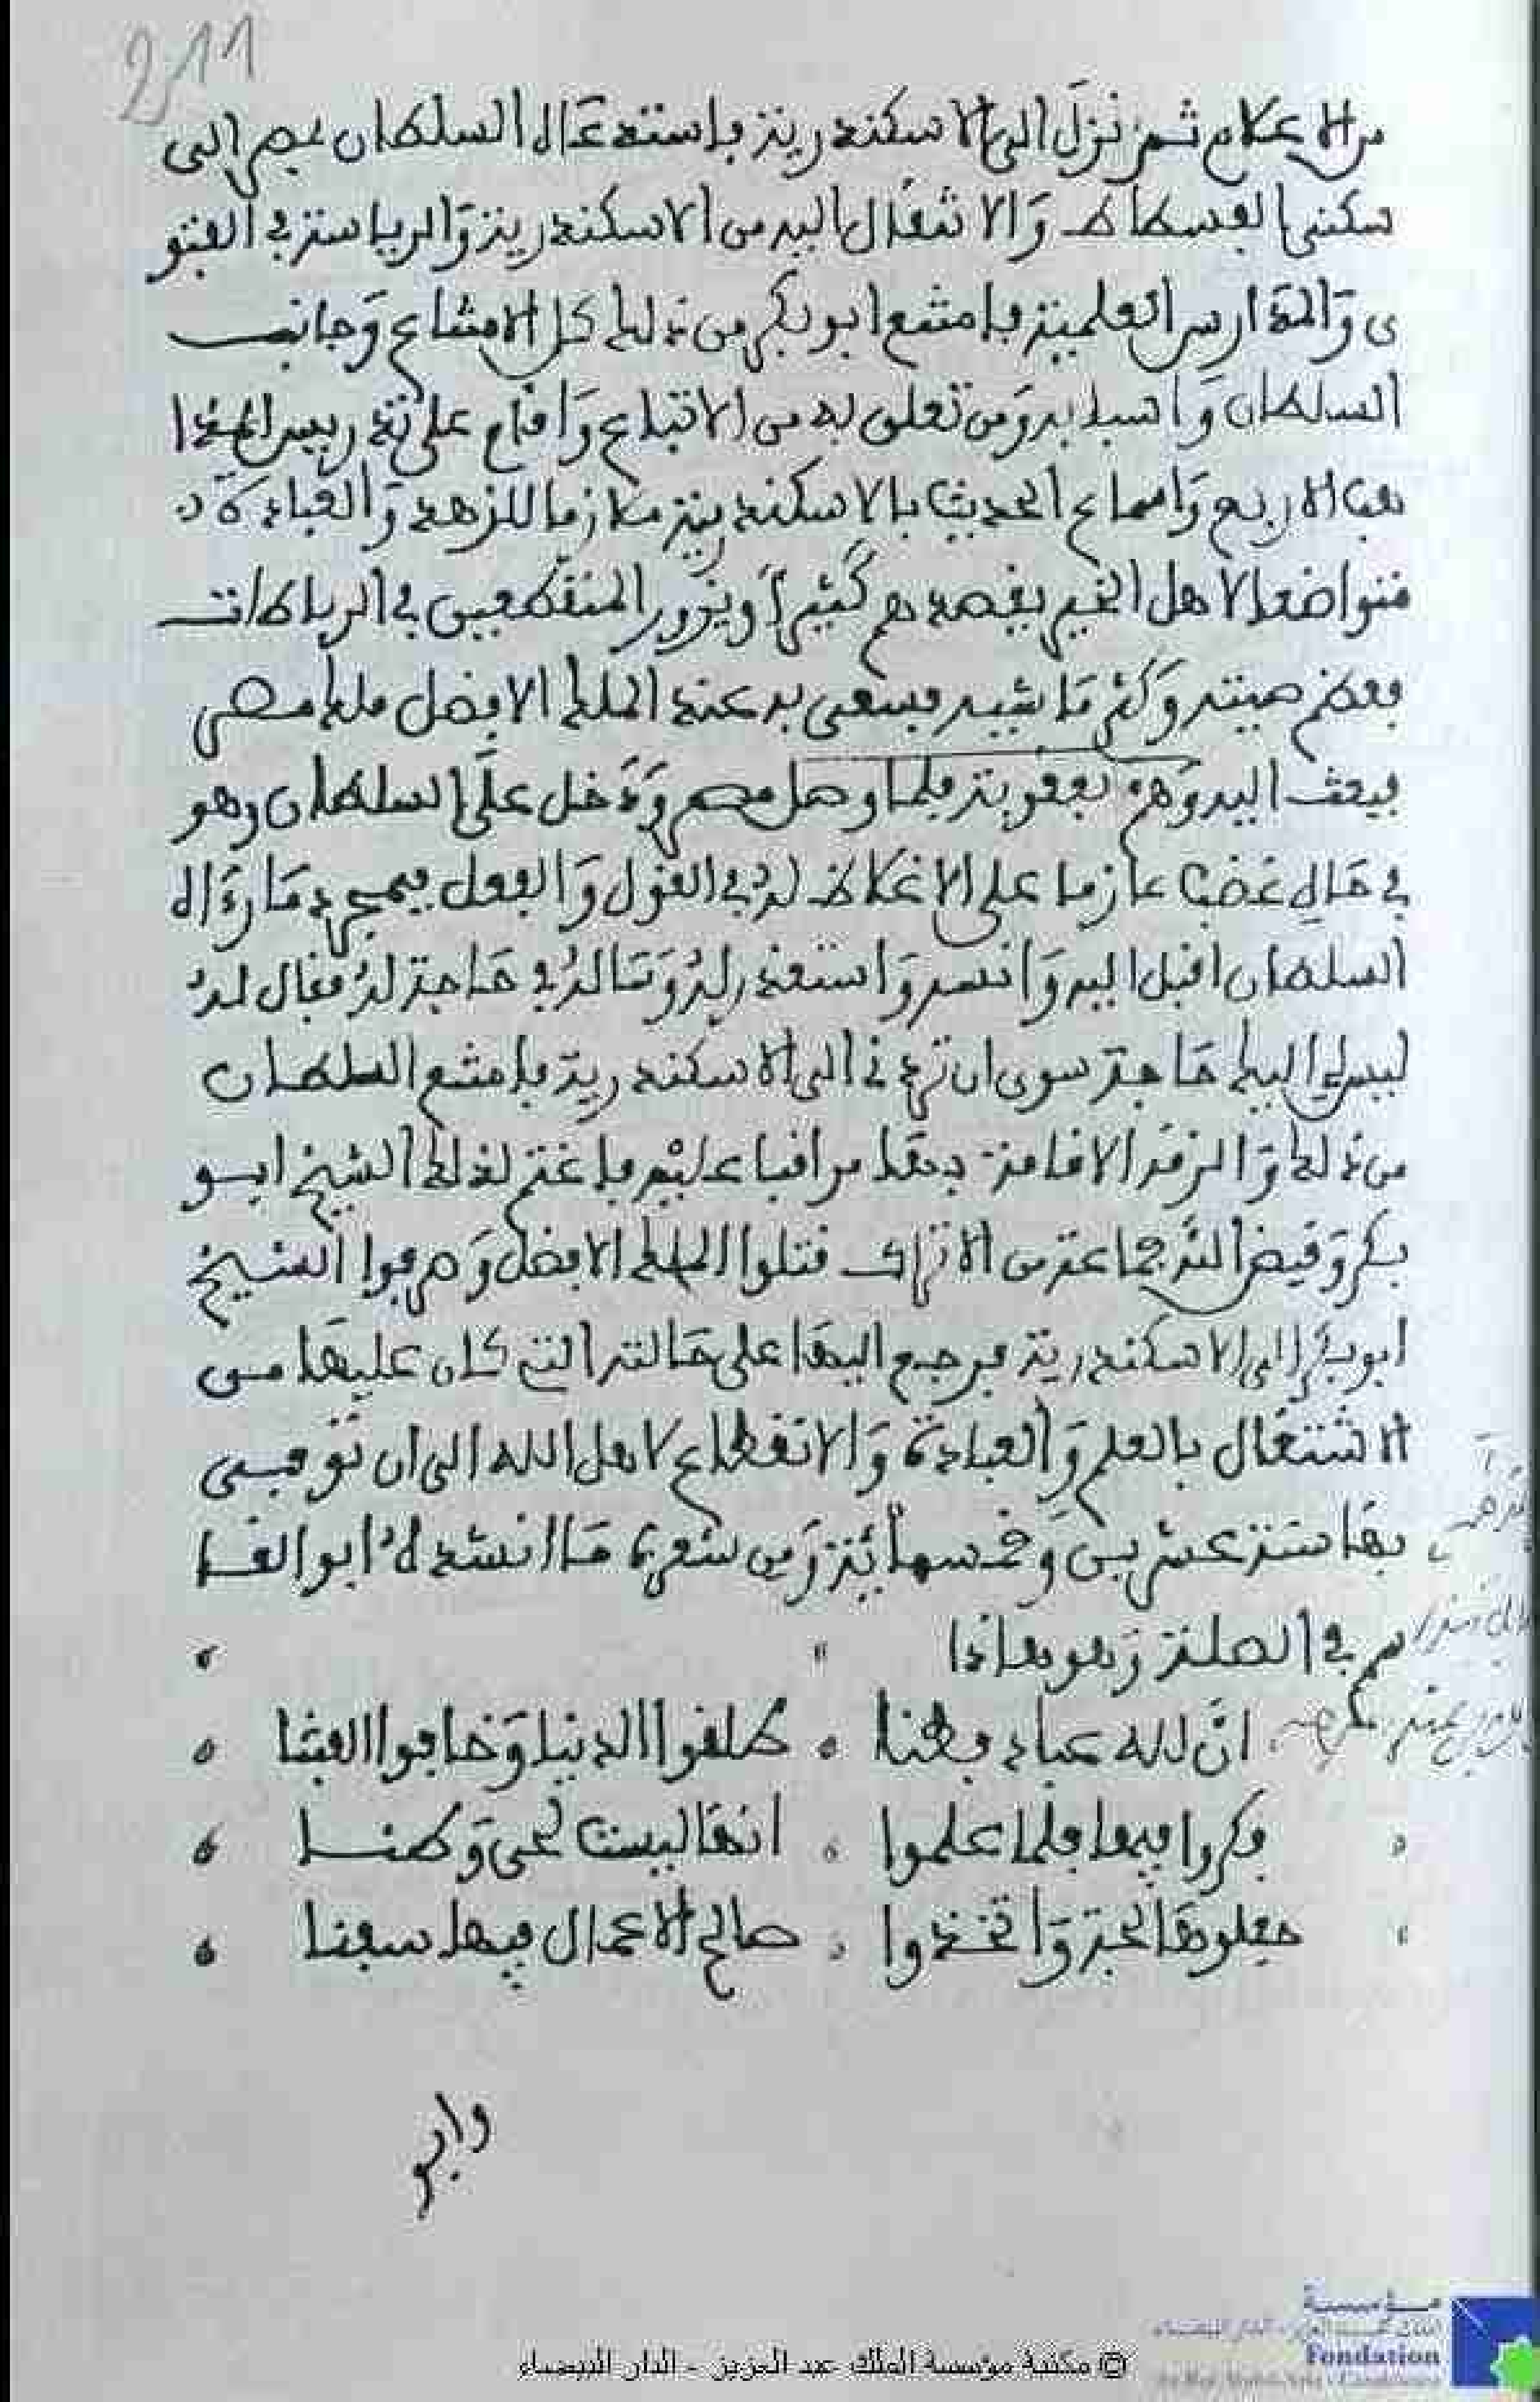 211
من الاعلام ثم نزل الى الاسكندرية فاستدعاه السلطان بمصر الى
سكنى الفسطاط والانتقال اليه من الاسكندرية والرياسة في الفتو
ى والمدارس العلمية فامتنع ابو بكر من ذلك كل الامتناع وجانب
السلطان واسبابه ومن تعلق به من الاتباع واقام على تدريس المذا
هب الاربع واسماع الحديث بالاسكندرية ملازما للزهد والعبادة
متواضعا لاهل الخير يقصدهم كثيرا ويزور المنقطعين في الرباطات
فعظم صيته وكثر ناشيه فسعى به عند الملك الافضل ملك مصر
فبعث اليه وهم بعقوبته فلما وصل مصر ودخل على السلطان وهو
في حال غضب عازما على الاغلاظ له في القول والفعل فبمجرد ما رءاه
السلطان اقبل اليه وانسه واستعذر له وساله في حاجة له فقال له
ليس لي اليك حاجة سوى ان تردني الى الاسكندرية فامتنع السلطان
من ذلك والزمه الاقامة مراقبا عليه فاغتم لذلك الشيخ ابو
بكر وقيض الله جماعة من الاتراك قتلوا الملك الافضل وصرفوا الشيخ
ابو بكر الى الاسكندرية فرجع اليها على حالته التي كان عليها من
الاشتغال بالعلم والعبادة والانقطاع لاهل الله الى ان توفي
بها سنة عشرين وخمسمائة ومن شعره ما انشده له ابو القا
سم في الصلة وهو هاذا
ان لله عباد فطنا طلقوا الدنيا وخافوا الفتنا
فكروا فيها فلما علموا انها ليست لحي وطنا
جعلوها لجة واتخذوا صالح الاعمال فيها سفنا
وابو
© مكتبة مؤسسة الملك عبد العزيز - الدار البيضاء
مؤسسة
Fondation